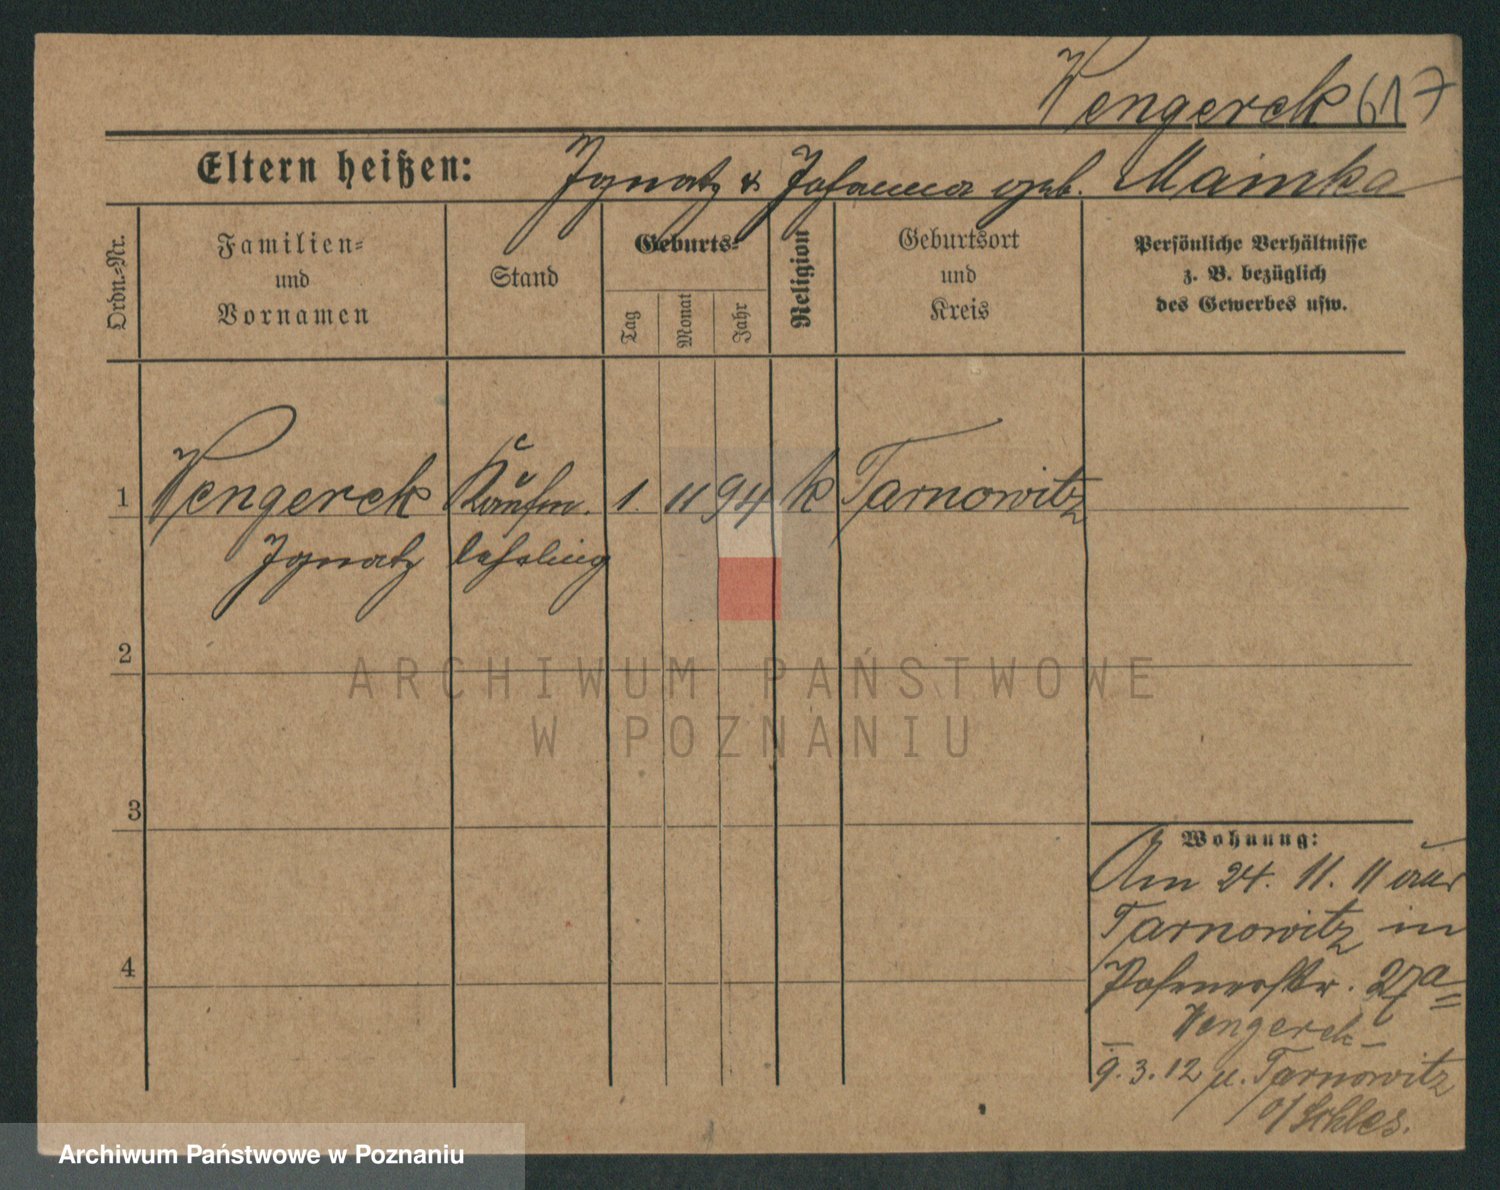 Wengerek 617
Eltern heißen: Ignatz & Johanna geb. Mainka
Ordn.-Nr.
Familien-
und
Vornamen
Stand
Geburts-
Tag
Monat
Jahr
Religion
Geburtsort
und
Kreis
Persönliche Verhältnisse
z. B. bezüglich
des Gewerbes usw.
1 Wengerek Kaufm. 1. 11 94 k Tarnowitz
Ignatz lehrling
2
3
4
Wohnung:
Am 24. 11. 11 aus
Tarnowitz in
Posenerstr. 27a
Wengerek
9. 3. 12 n. Tarnowitz
o/Schles.
ARCHIWUM PAŃSTWOWE
W POZNANIU
Archiwum Państwowe w Poznaniu